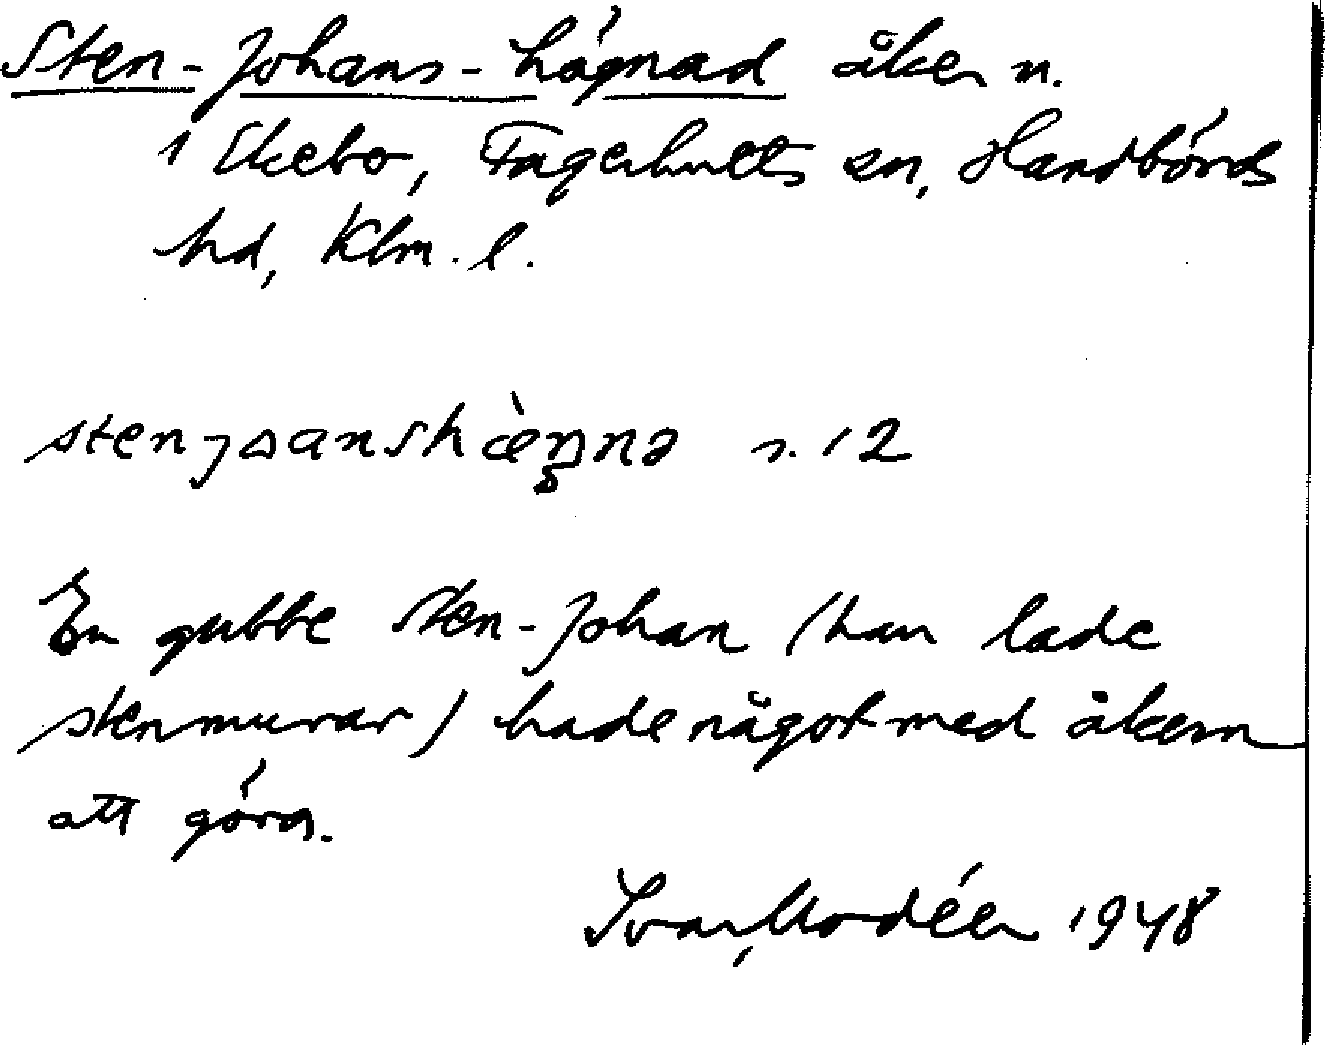 Sten-Johans-hägnad åker n.
i Ekebo, Fagerhults sn, Handbörds
hd, Klm. l.
s. 12
En gubbe Sten-Johan (han lade
stenmurar) hade något med åkern
att göra.
Ivar Modéer 1948